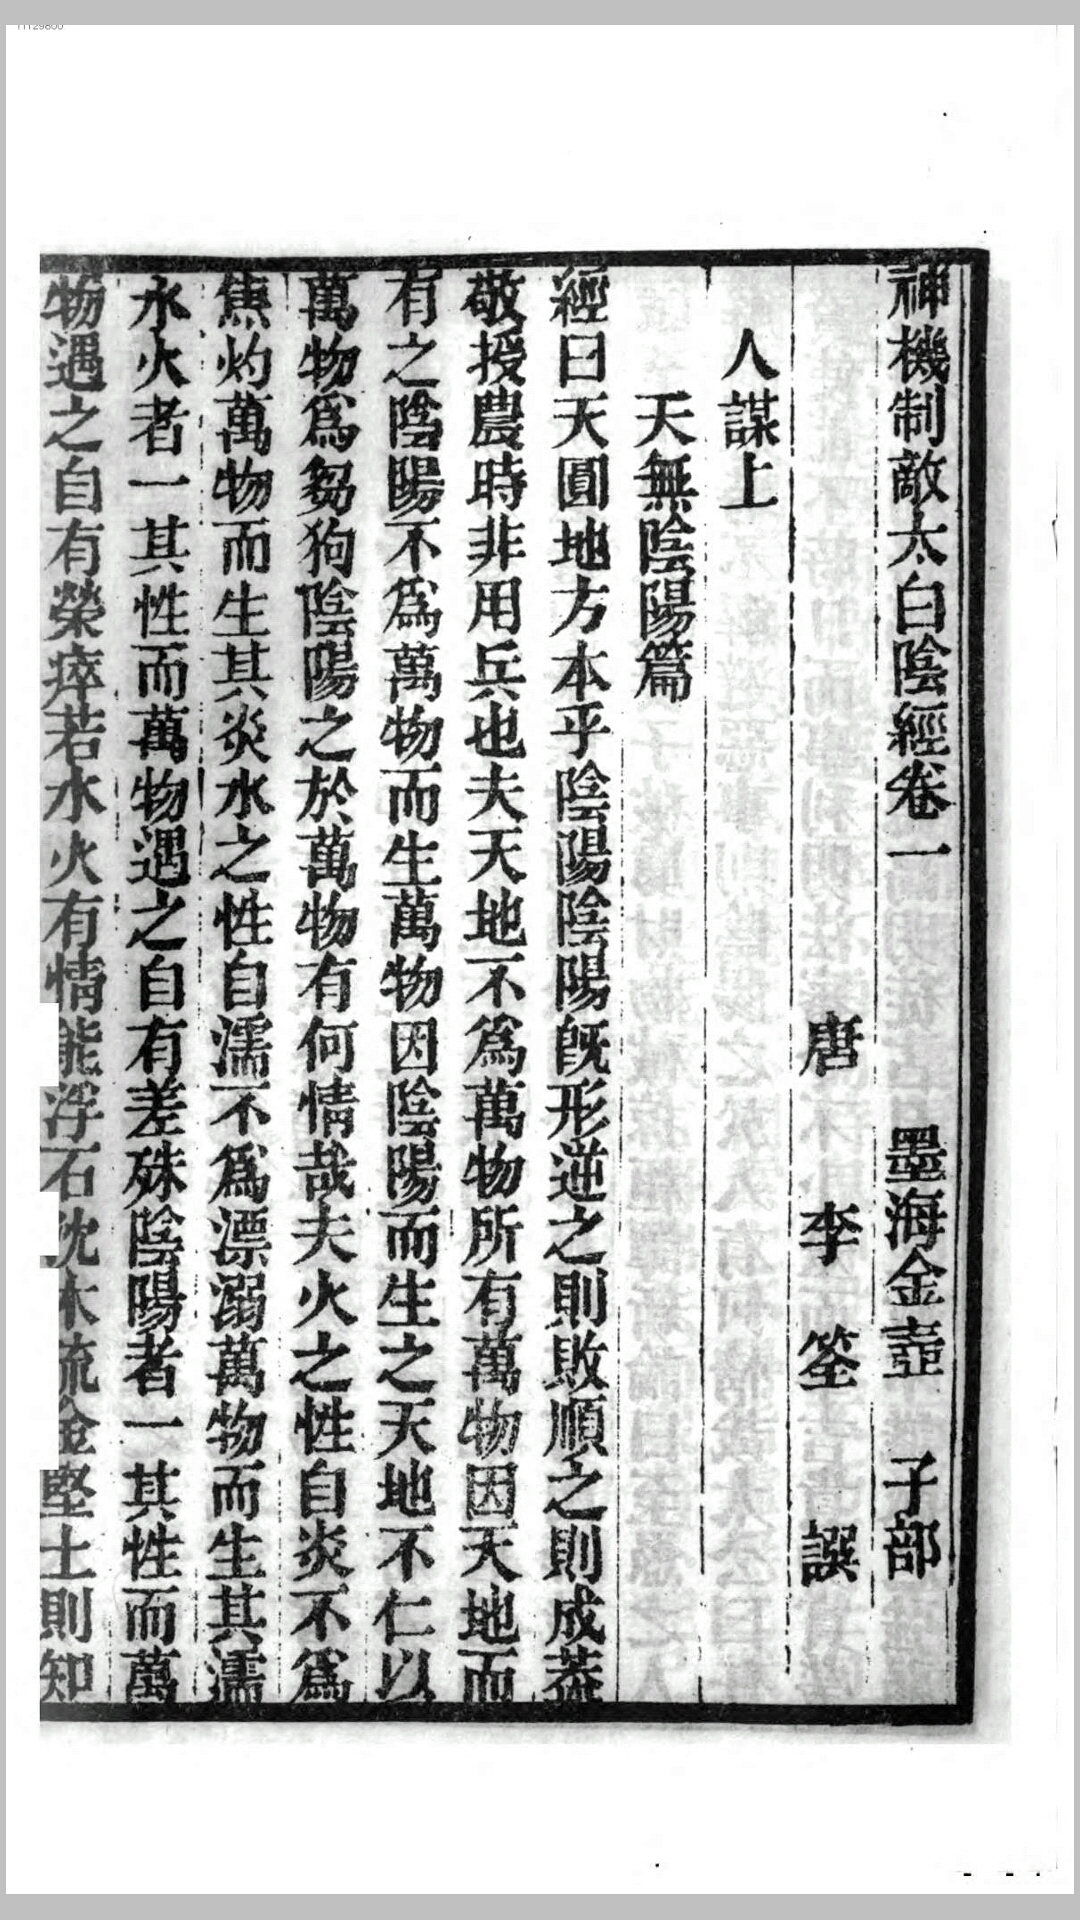 神機制敵太白陰經卷一　墨海金壺　子部
唐　李　筌　譔
人謀上
天無陰陽篇
經曰天圓地方本乎陰陽陰陽旣形逆之則敗順之則成蓋
敬授農時非用兵也夫天地不爲萬物所有萬物因天地而
有之陰陽不爲萬物而生萬物因陰陽而生之天地不仁以
萬物爲芻狗陰陽之於萬物有何情哉夫火之性自炎不爲
焦灼萬物而生其炎水之性自濡不爲漂溺萬物而生其濡
水火者一其性而萬物遇之自有差殊陰陽者一其性而萬
物遇之自有榮瘁若水火有情能浮石沈木流金堅土則知